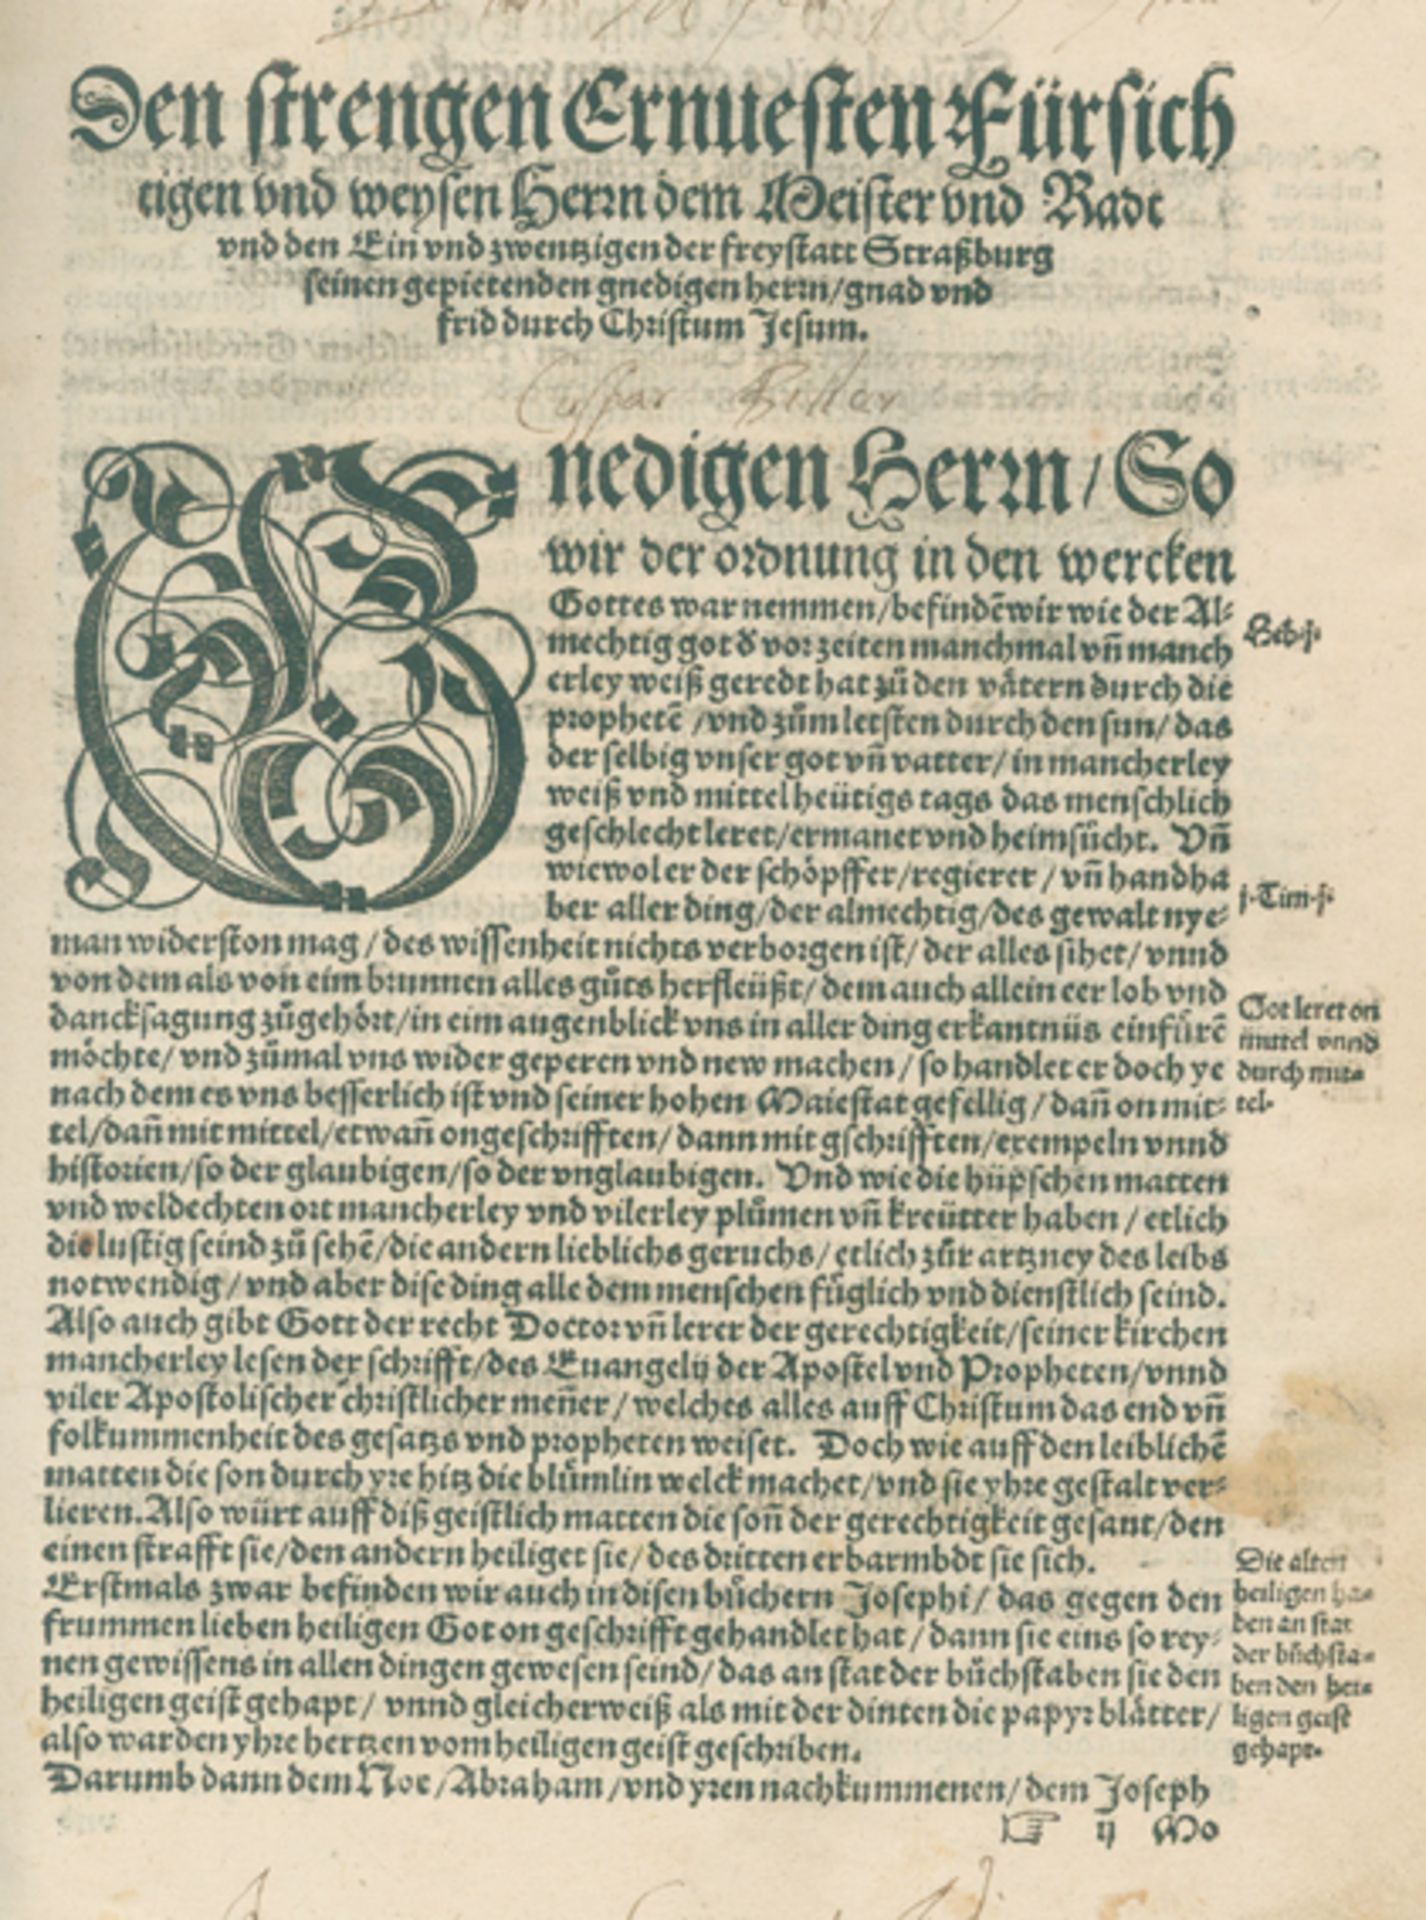 Den strengen Ernuesten Fürsich
tigen vnd weysen Herrn dem Meister vnd Radt
vnd den Ein vnd zwentzigen der freystatt Straßburg
seinen gepietenden gnedigen herrn/gnad vnd
frid durch Christum Jesum.
Gnedigen Herrn/So
wir der ordnung in den wercken
Gottes war nemmen/befindē wir wie der Al-
mechtig got d vor zeiten manchmal vñ manch
erley weiß geredt hat zů den vätern durch die
prophetē/vnd zům letsten durch den sun/das
der selbig vnser got vñ vatter/in mancherley
weiß vnd mittel heütigs tags das menschlich
geschlecht leret/ermanet vnd heimsůcht. Vñ
wiewol er der schöpffer/regierer/vñ handha
ber aller ding/der almechtig/des gewalt nye-
man widerston mag/des wissenheit nichts verborgen ist/der alles sihet/vnnd
von dem als von eim brunnen alles gůts herfleüßt/dem auch allein eer lob vnd
dancksagung zůgehört/in eim augenblick vns in aller ding erkantnüs einfürē
möchte/vnd zůmal vns wider geperen vnd new machen/so handlet er doch ye
nach dem es vns besserlich ist vnd seiner hohen Maiestat gefellig/dañ on mit-
tel/dañ mit mittel/etwañ on geschrifften/dann mit gschrifften/exempeln vnnd
historien/so der glaubigen/so der vnglaubigen. Vnd wie die hüpschen matten
vnd weldechten ort mancherley vnd vilerley plůmen vñ kreütter haben/etlich
die lustig seind zů sehē/die andern lieblichs geruchs/etlich zůr artzney des leibs
notwendig/vnd aber dise ding alle dem menschen füglich vnd dienstlich seind.
Also auch gibt Gott der recht Doctor vñ lerer der gerechtigkeit/seiner kirchen
mancherley lesen der schrifft/des Euangelij der Apostel vnd Propheten/vnnd
viler Apostolischer christlicher meñer/welches alles auff Christum das end vñ
folkummenheit des gesatzs vnd propheten weiset. Doch wie auff den leiblichē
matten die son durch yre hitz die blůmlin welck machet/vnd sie yhre gestalt ver-
lieren. Also würt auff diß geistlich matten die soñ der gerechtigkeit gesant/den
einen strafft sie/den andern heiliget sie/des dritten erbarmbdt sie sich.
Erstmals zwar befinden wir auch in disen bůchern Josephi/das gegen den
frummen lieben heiligen Got on geschrifft gehandlet hat/dann sie eins so rey-
nen gewissens in allen dingen gewesen seind/das an stat der bůchstaben sie den
heiligen geist gehapt/vnnd gleicherweiß als mit der dinten die papyr blätter/
also warden yhre hertzen vom heiligen geist geschriben.
Darumb dann dem Noe/Abraham/vnd yren nachkummenen/dem Joseph
ij Mo
Heb.j.
j.Tim.j.
Got leret on
mittel vnnd
durch mit-
tel.
Die alten
heiligen ha-
ben an stat
der bůchsta-
ben den hei-
ligen geist
gehapt.